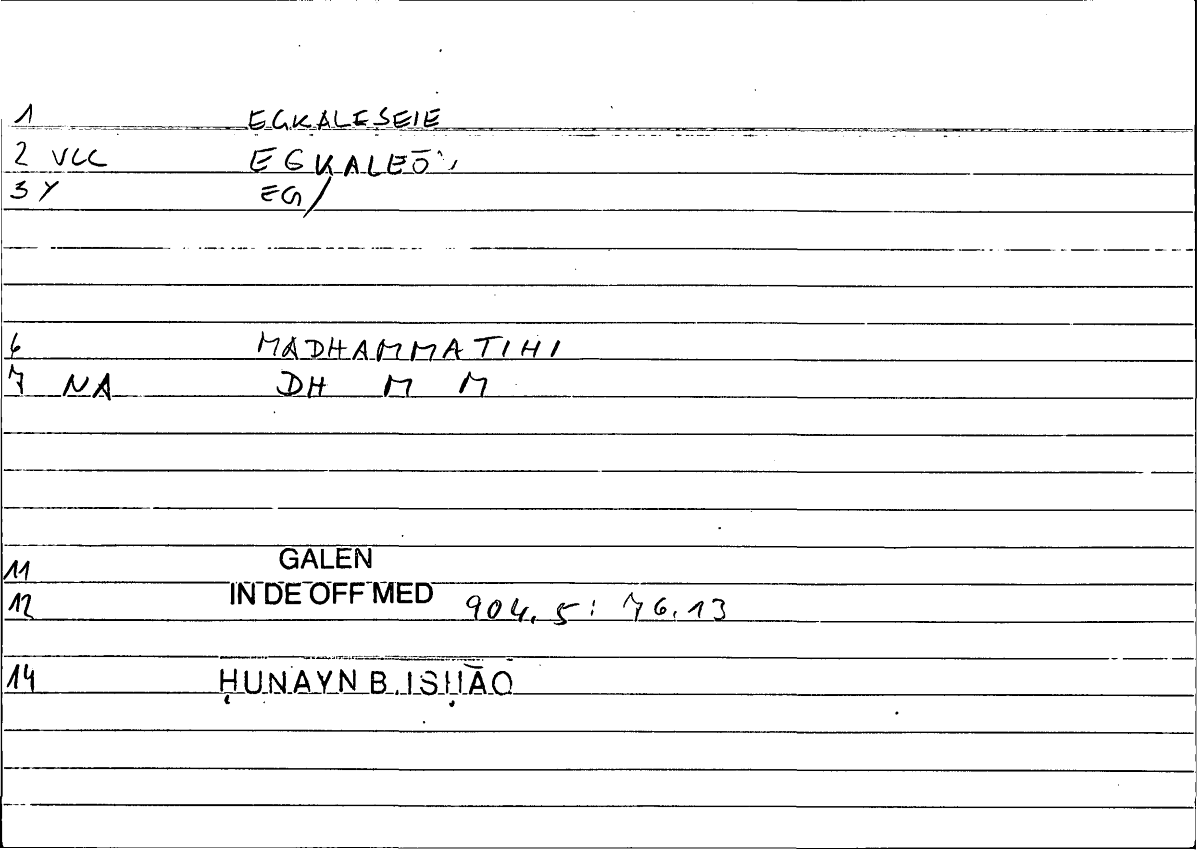 1 EGKALESEIE
2 VCC EGKALEŌ
3 Y EG/
6 MADHAMMATIHI
7 NA DH M M
11 GALEN
12 IN DE OFF MED 904.5: 76.13
14 ḤUNAYN B. ISḤĀQ